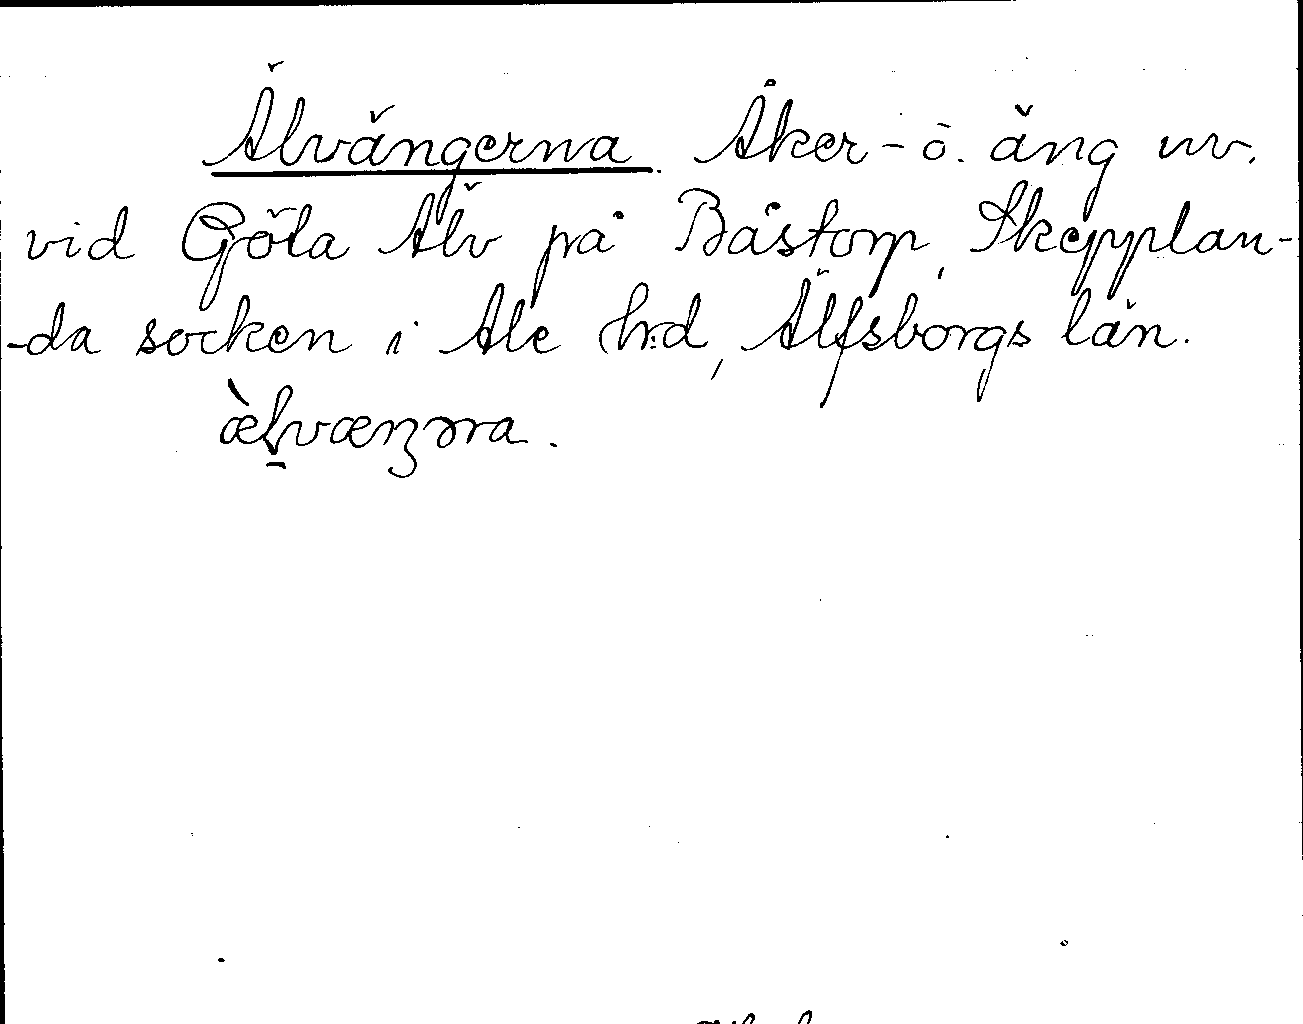 Älvängerna. Åker- o. äng nv.
vid Göta Älv på Båstorp, Skepplan-
-da socken i Ale h:d, Älfsborgs län.
æ̀ḷvæŋəra.